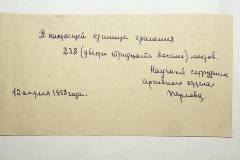 В настоящей единице хранения
238 (двести тридцать восемь) листов.
Научный сотрудник
архивного отдела
12 апреля 1958 года.